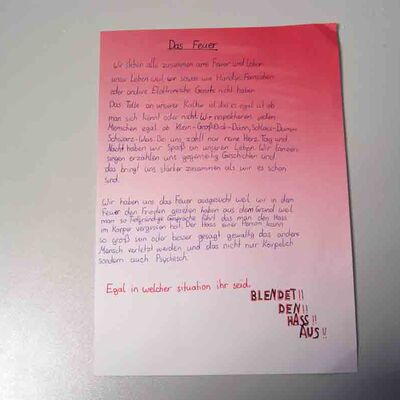 Das Feuer
Wir stehen alle zusammen ams Feuer und leben
unser Leben weil wir sowas wie Handys Fernsehen
oder andere Elektronische Geräte nicht haben
Das Tolle an unserer Kultur ist das es egal ist ob
man sich kennt oder nicht. Wir respektieren jeden
Menschen egal ob Klein-Groß, Dick-Dünn, Schlau-Dumm
Schwarz-Weis. Bei uns zählt nur reine Herz. Tag und
Nacht haben wir Spaß an unseren Leben. Wir tanzen
singen erzählen uns gegenseitig Geschichten und
das bringt uns stärker zusammen als wir es schon
sind.
Wir haben uns das Feuer ausgesucht weil wir in den
Feuer den Frieden gesehen haben aus dem Grund weil
man so Tiefgründige Gespräche führt das man den Hass
im Körper vergessen hat. Der Hass einer Person kann
so groß sein oder besser gesagt gewaltig das andere
Mensch verletzt werden und das nicht nur Körperlich
sondern auch Psychisch.
Egal in welcher situation ihr seid,
BLENDET!!
DEN!!
HASS!!
AUS!!